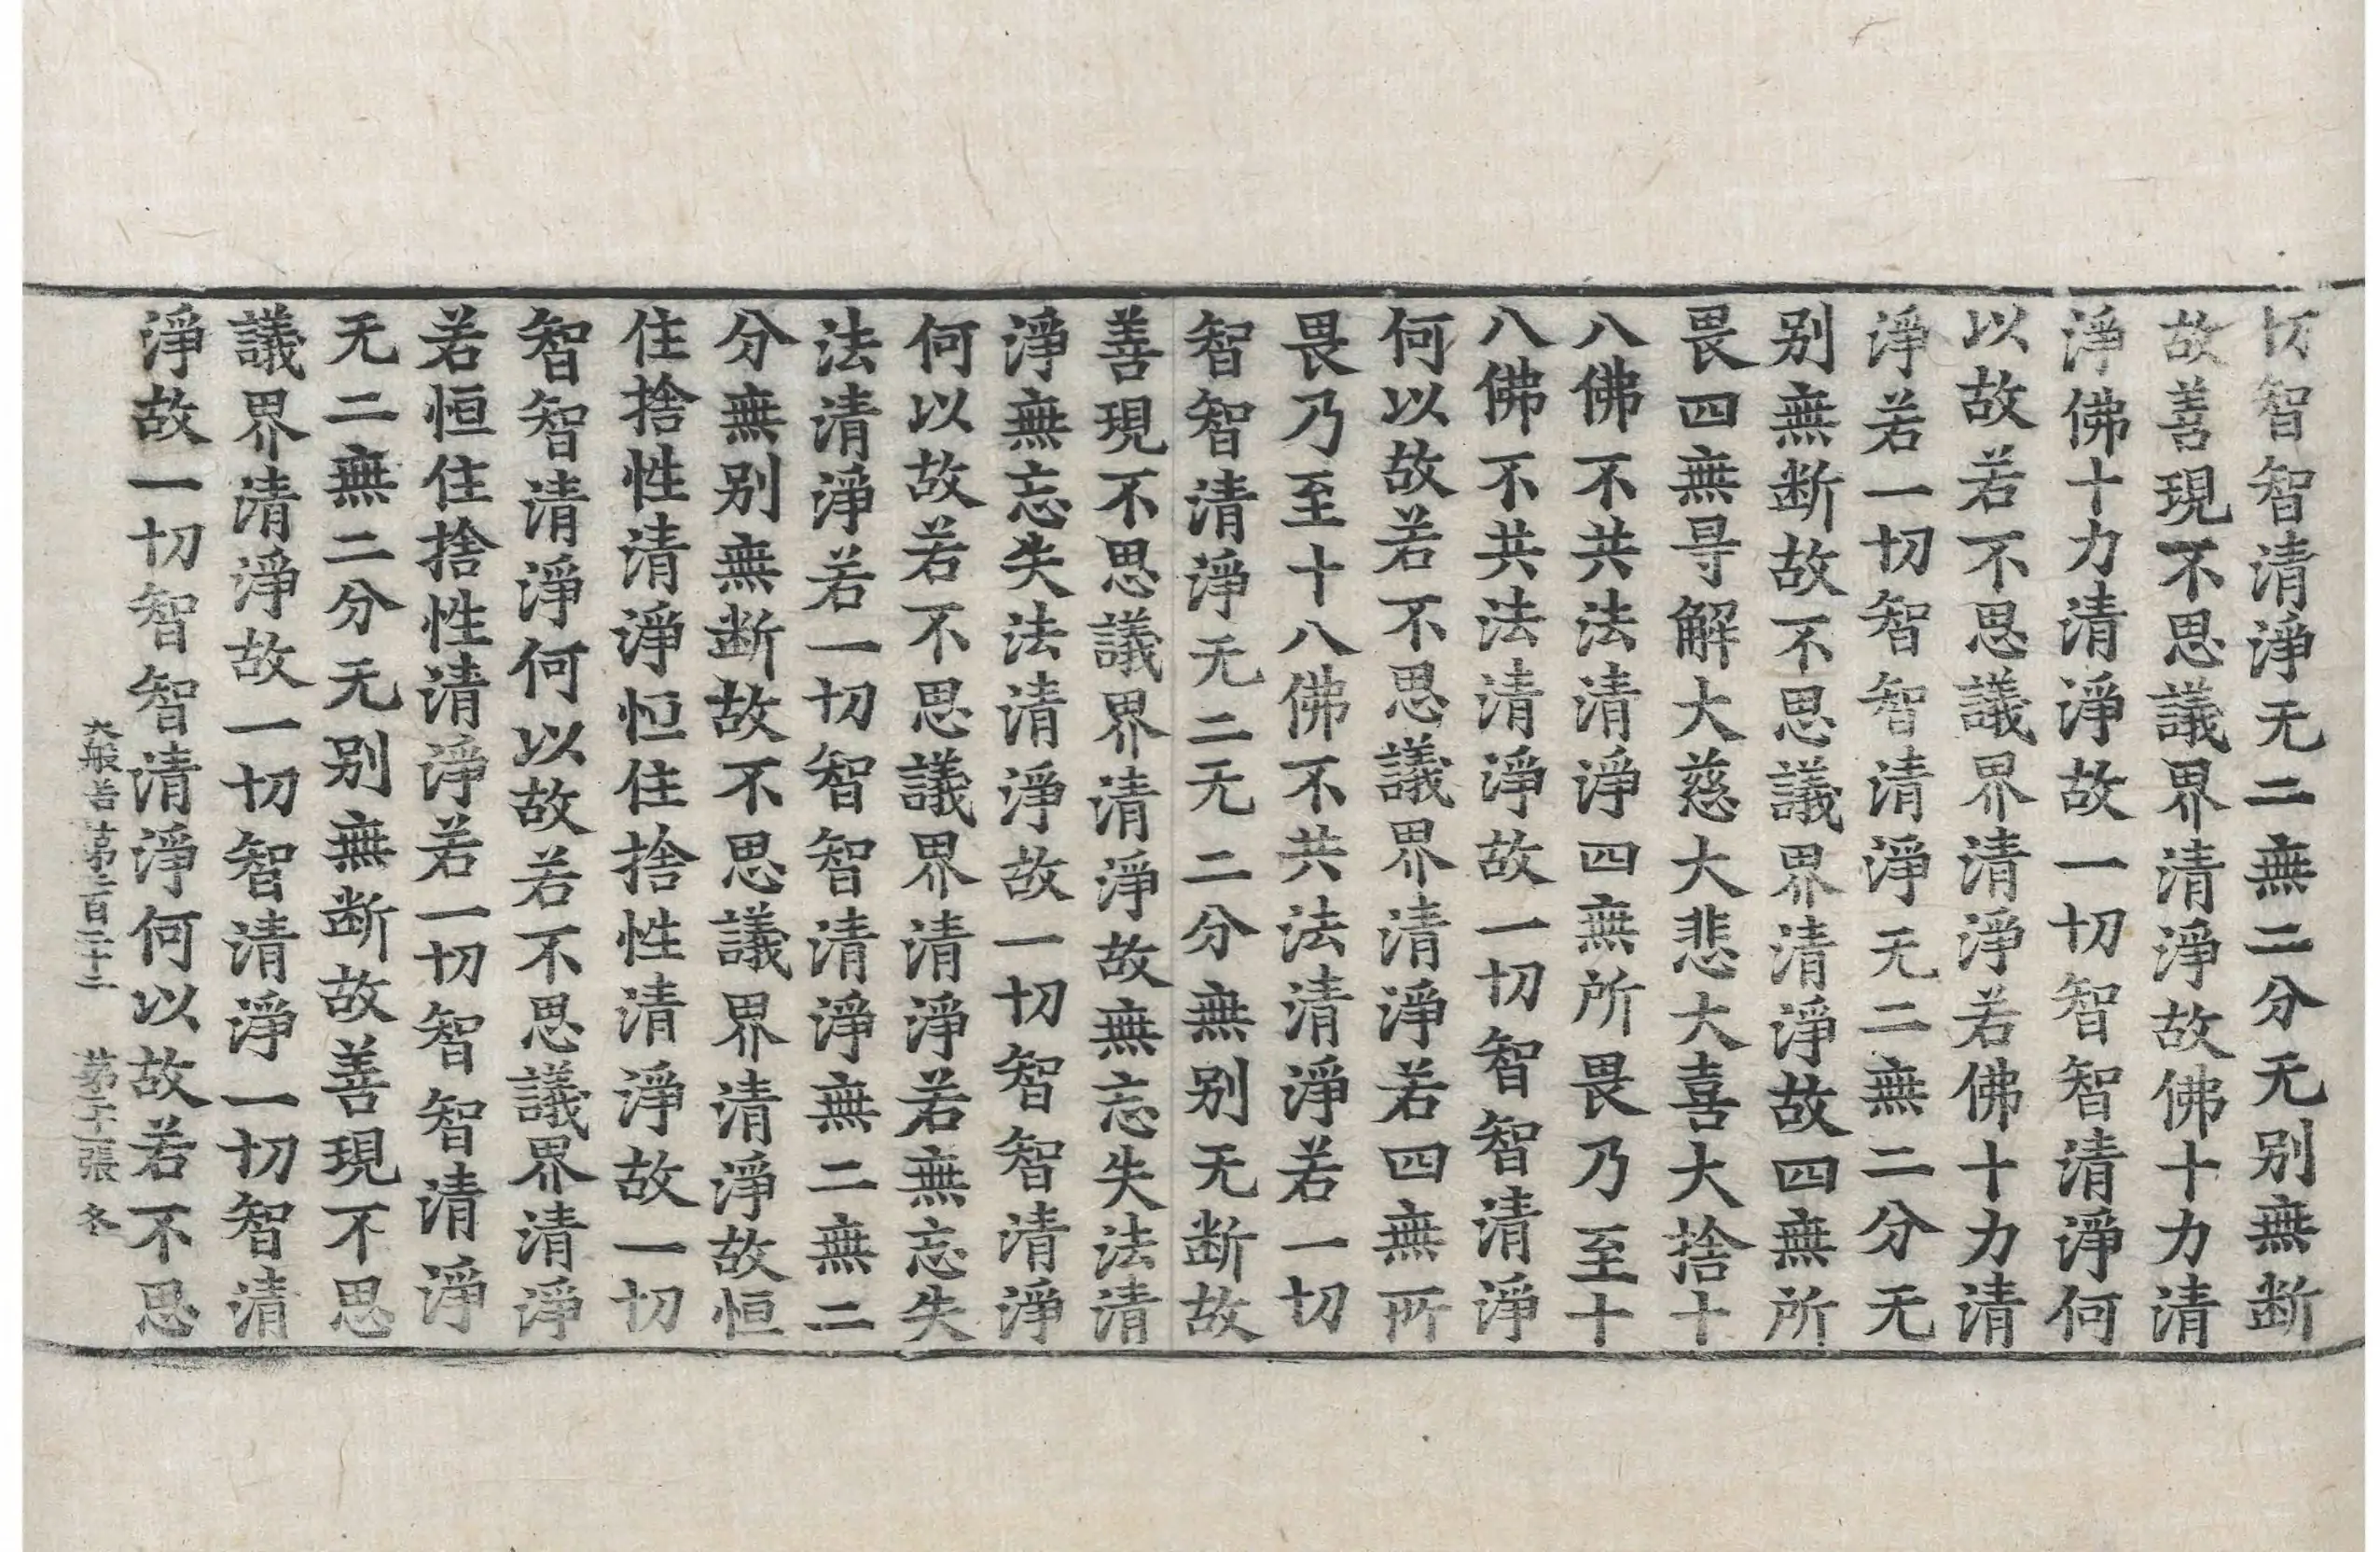 切智智清淨无二無二分无别無断
故善現不思議界清淨故佛十力清
淨佛十力清淨故一切智智清淨何
以故若不思議界清淨若佛十力清
淨若一切智智清淨无二無二分无
别無断故不思議界清淨故四無所
畏四無㝵解大慈大悲大喜大捨十
八佛不共法清淨四無所畏乃至十
八佛不共法清淨故一切智智清淨
何以故若不思議界清淨若四無所
畏乃至十八佛不共法清淨若一切
智智清淨无二无二分無别无断故
善現不思議界清淨故無忘失法清
淨無忘失法清淨故一切智智清淨
何以故若不思議界清淨若無忘失
法清淨若一切智智清淨無二無二
分無别無断故不思議界清淨故恒
住捨性清淨恒住捨性清淨故一切
智智清淨何以故若不思議界清淨
若恒住捨性清淨若一切智智清淨
无二無二分无别無断故善現不思
議界清淨故一切智清淨一切智清
淨故一切智智清淨何以故若不思
大般若 第百二十二 第張 冬